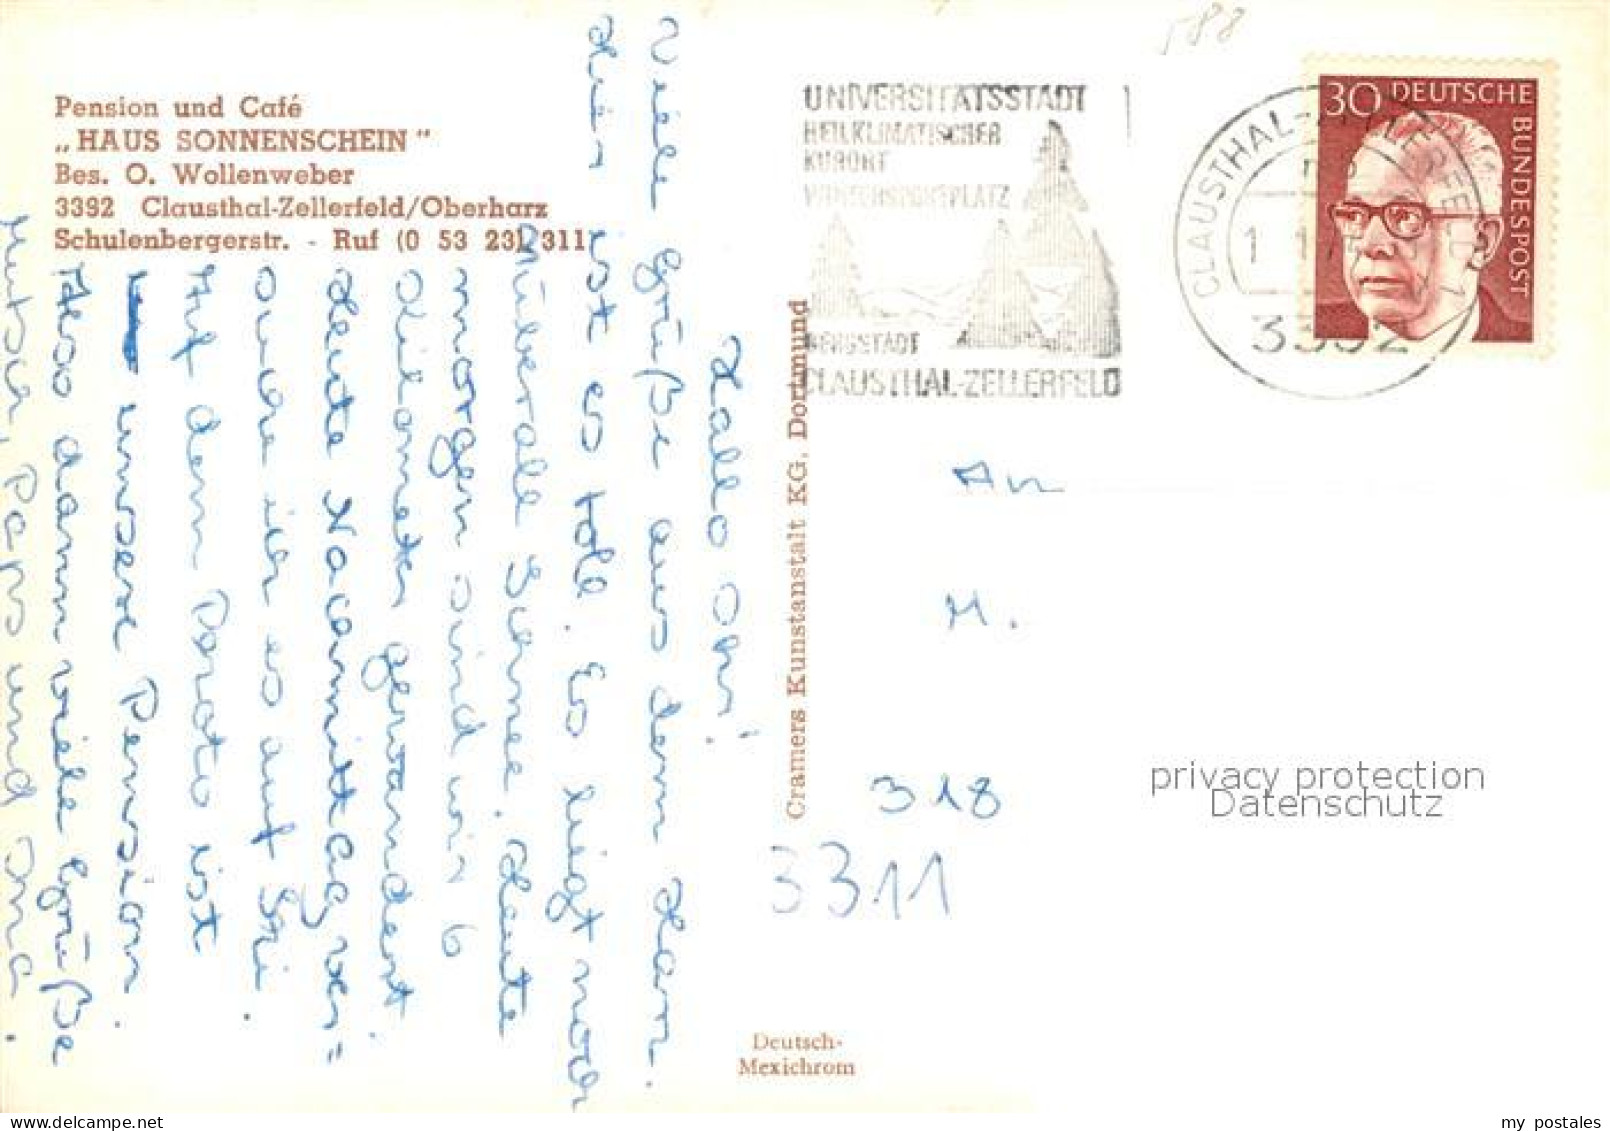 588
Pension und Café
„HAUS SONNENSCHEIN“
Bes. O. Wollenweber
3392 Clausthal-Zellerfeld/Oberharz
Schulenbergerstr. - Ruf (0 53 23) 311
UNIVERSITÄTSSTADT
HEILKLIMATISCHER
KURORT
WINTERSPORTPLATZ
BERGSTADT
CLAUSTHAL-ZELLERFELD
CLAUSTHAL-ZELLERFELD 1
3392
30 DEUTSCHE
BUNDESPOST
Hallo Omi!
Viele Grüße aus dem Harz.
Hier ist es toll. Es liegt noch
überall Schnee. Heute
morgen sind wir 6
Kilometer gewandert.
Heute Nachmittag ver=
suche ich es auf Ski.
Auf dem Photo ist
unsere Pension.
Also dann viele Grüße
Mutsch, Paps und Ina.
Cramers Kunstanstalt KG, Dortmund
An
H.
318
3311
privacy protection
Datenschutz
Deutsch-
Mexichrom
my postales